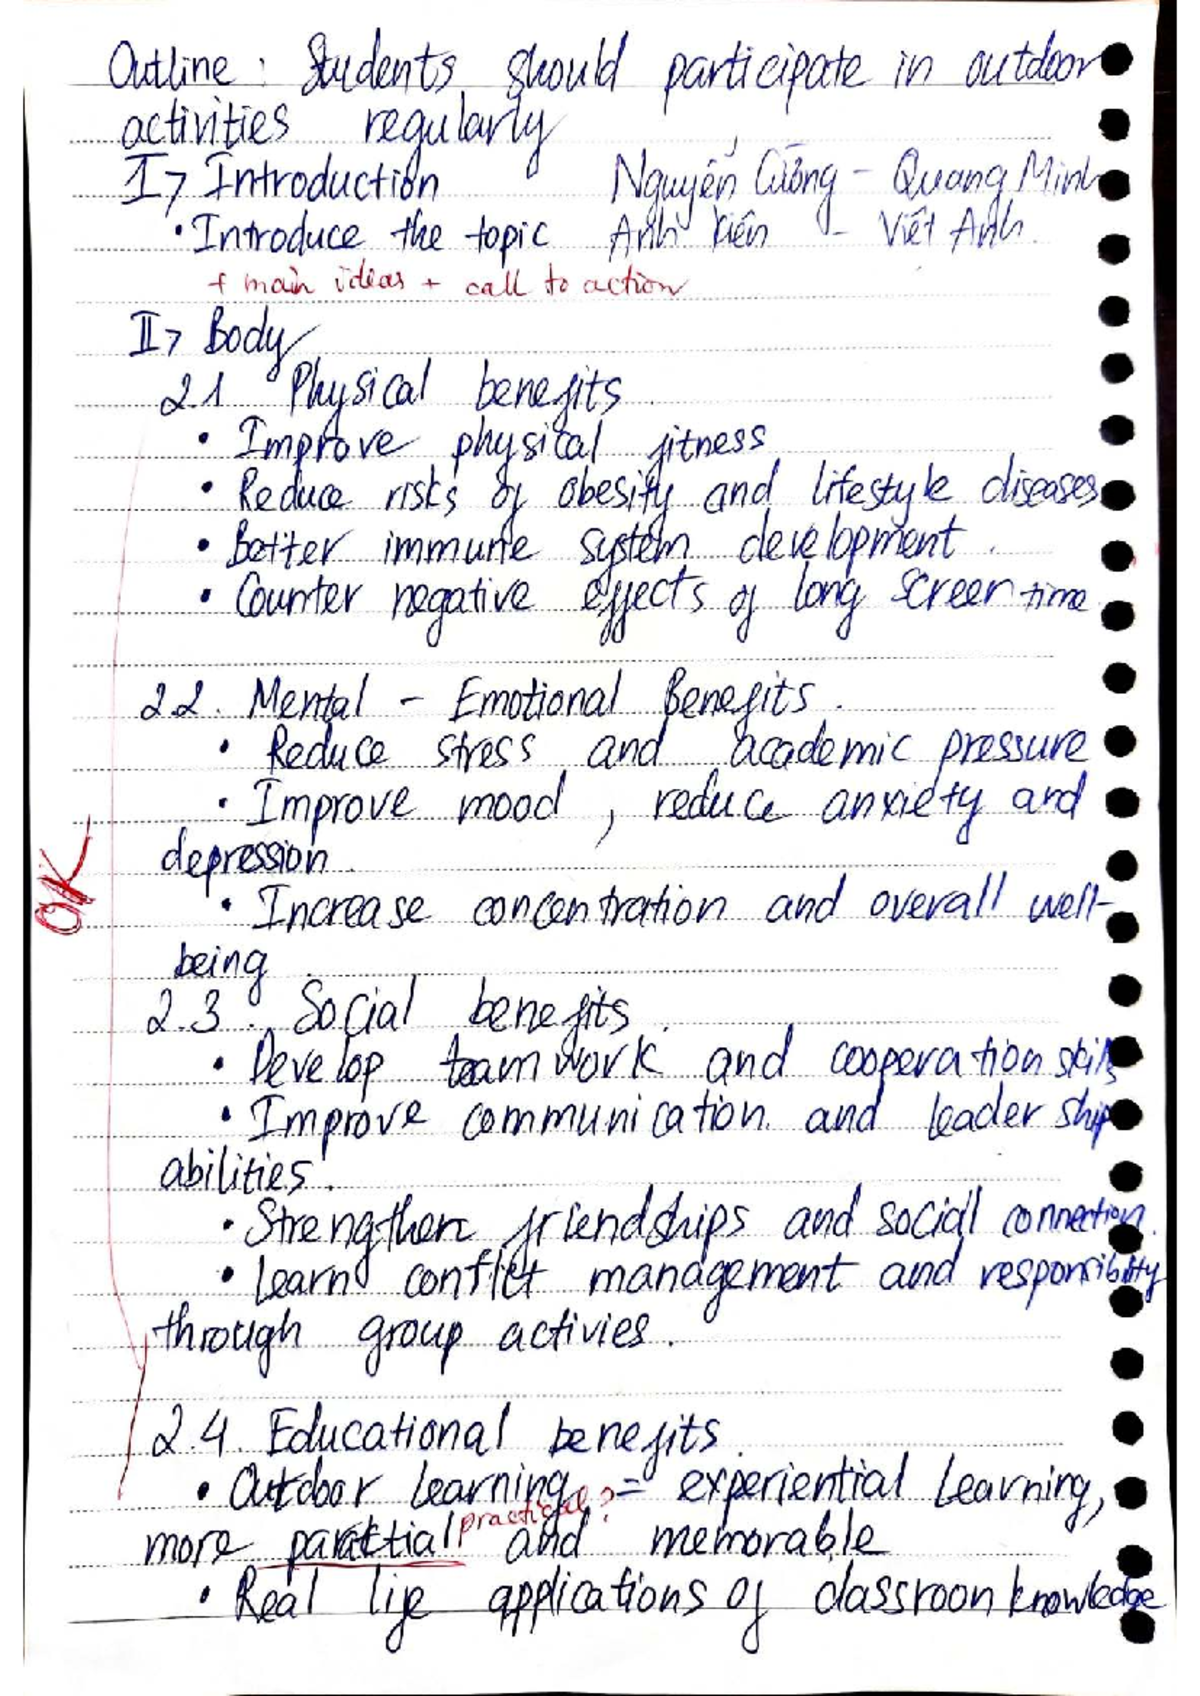 Outline : Students should participate in outdoor
activities regularly
I> Introduction Nguyễn Cường - Quang Minh
• Introduce the topic Anh Kiên - Việt Anh
+ main ideas + call to action
II> Body
2.1 Physical benefits.
• Improve physical fitness
• Reduce risks of obesity and lifestyle diseases
• Better immune system development.
• Counter negative effects of long screen time
2.2. Mental - Emotional Benefits.
• Reduce stress and academic pressure
• Improve mood, reduce anxiety and
depression.
OK
• Increase concentration and overall well-
being.
2.3. Social benefits.
• Develop teamwork and cooperation skills
• Improve communication and leadership
abilities.
• Strengthen friendships and social connection.
• Learn conflict management and responsibility
through group activies.
2.4. Educational benefits.
• Outdoor learning = experiential learning,
practical?
more and memorable
• Real life applications of classroon knowledge